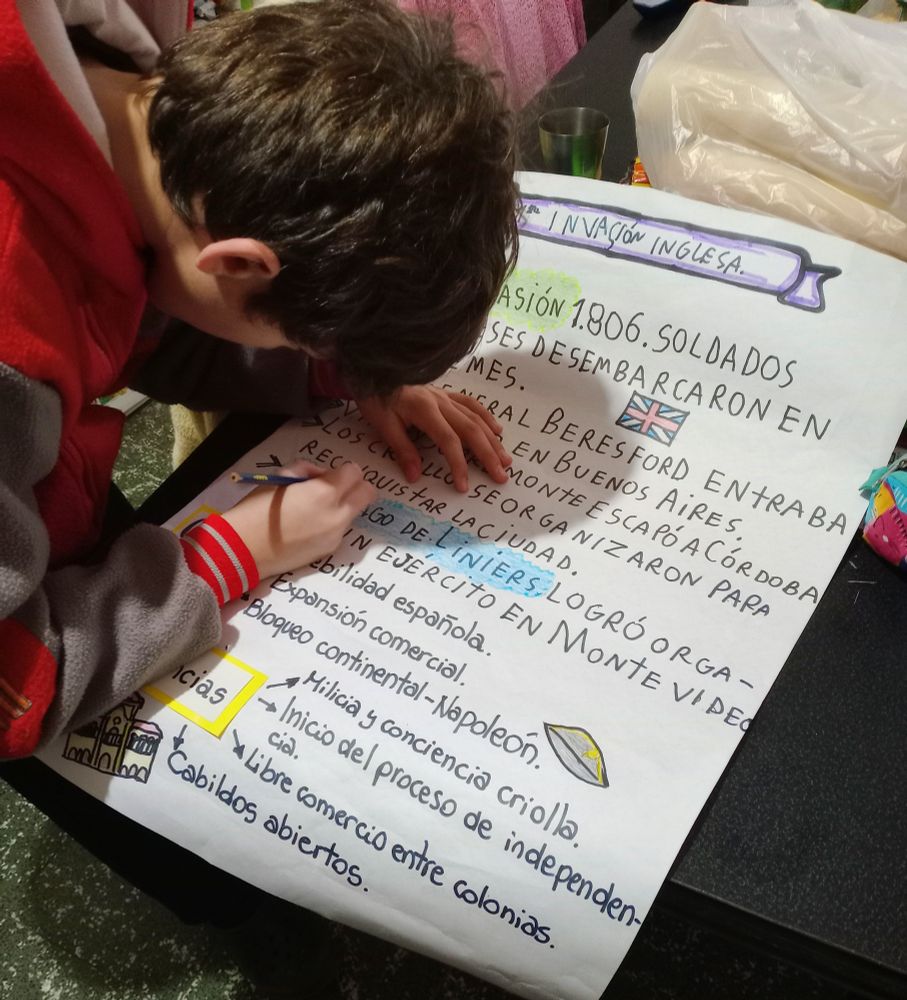 INVACIÓN INGLESA.
ASIÓN 1.806. SOLDADOS
SES DESEMBARCARON EN
MES.
ENERAL BERESFORD ENTRABA
EN BUENOS AIRES.
MONTE ESCAPÓ A CÓRDOBA
LOS SE ORGANIZARON PARA
RECONQUISTAR LA CIUDAD.
GO DE LINIERS, LOGRÓ ORGA-
UN EJERCITO EN MONTE VIDEO
ebilidad española.
Expansión comercial.
Bloqueo continental-Napoleón.
icias
→ Milicia y conciencia criolla.
→ Inicio del proceso de independen-
cia.
↘ Libre comercio entre colonias.
↓ Cabildos abiertos.